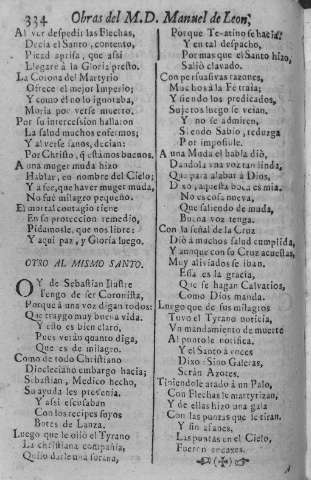 334 Obras del M. D. Manuel de Leon,
Al ver despedir las Flechas,
Decia el Santo, contento,
Picad aprisa, que assi
Llegare à la Gloria presto.
La Corona del Martyrio
Ofrece el mejor Imperio;
Y como él no lo ignoraba,
Moria por verse muerto.
Por su intercession hallaron
La salud muchos enfermos;
Y al verse sanos, decian:
Por Christo, q̃ estámos buenos.
A una muger muda hizo
Hablar, en nombre del Cielo;
Y a fee, que haver muger muda,
No fué milagro pequeño.
El mortal contagio tiene
En su proteccion remedio,
Pidamosle, que nos libre:
Y aqui paz, y Gloria luego.
OTRO AL MISMO SANTO.
OY de Sebastian Ilustre
Tengo de ser Coronista,
Porque à una voz digan todos:
Que traygo muy buena vida.
Y esto es bien claro,
Pues verán quanto diga,
Que es de milagro.
Como de todo Christiano
Diocleciano embargo hacia;
Sebastian, Medico hecho,
Su ayuda les prevenia.
Y assi escusaban
Con los recipes suyos
Botes de Lanza.
Luego que le oió el Tyrano
La christiana compañia,
Quiso darle una
Porque Te-atino se hacia?
Y en tal despacho,
Por mas que el Santo hizo,
Salió clavado.
Con persuasivas razones,
Muchos à la Fé traía;
Y siendo los predicados,
Sujetos luego se veían.
Y no se admiren,
Siendo Sabio, reduzga
Por impossible.
A una Muda el habla dió,
Dandola una voz tan linda,
Que para alabar à Dios,
Dixo, aquesta boca es mia.
No es cosa nueva,
Que saliendo de muda,
Buena voz tenga.
Con la señal de la Cruz
Dió à muchos salud cumplida,
Y aunque con su Cruz acuestas,
Muy aliviados se iban.
Essa es la gracia,
Que se hagan Calvarios,
Como Dios manda.
Luego que de sus milagros
Tuvo el Tyrano noticia,
Un mandamiento de muerte
Al punto le notifica.
Y el Santo à voces
Dixo: Si no Galeras,
Serán Azotes.
Tiniendole atado à un Palo,
Con Flechas le martyrizan,
Y de ellas hizo una gala
Con las puntas que le tiran.
Y sin afanes,
Las puntas en el Cielo,
Fueron encaxes.
A